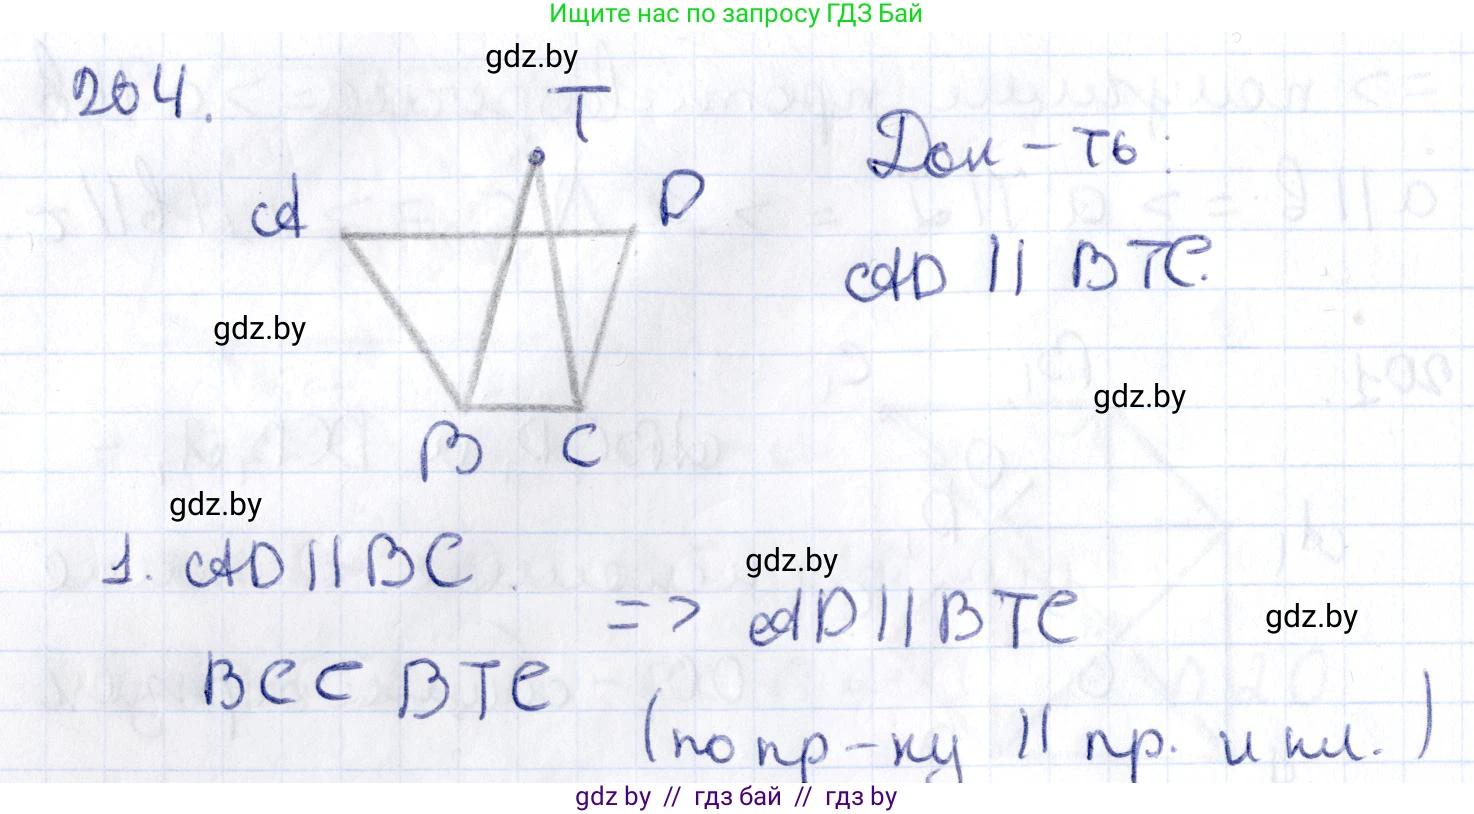 Ищите нас по запросу ГДЗ Бай
gdz.by
204.
T
A
D
Док-ть:
AD || BTC.
gdz.by
gdz.by
B C
gdz.by
1. AD || BC
gdz.by
=> AD || BTC
gdz.by
BC ⊂ BTC
(по пр-ку || пр. и пл.)
gdz by // гдз бай // гдз by